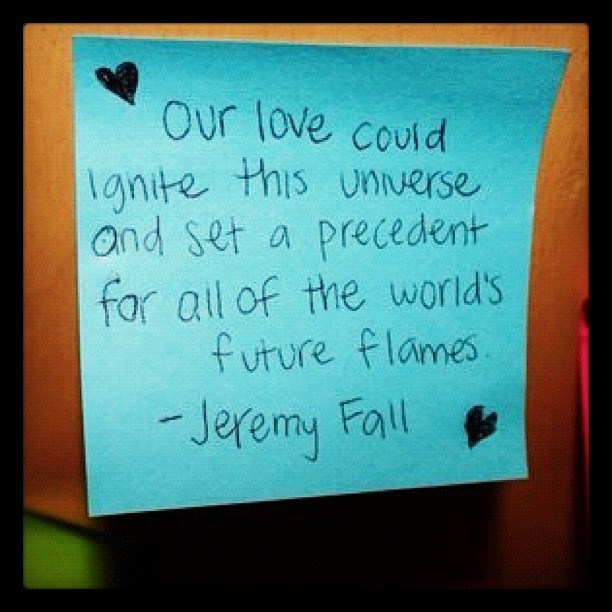 Our love could
ignite this universe
and set a precedent
for all of the world's
future flames.
-Jeremy Fall